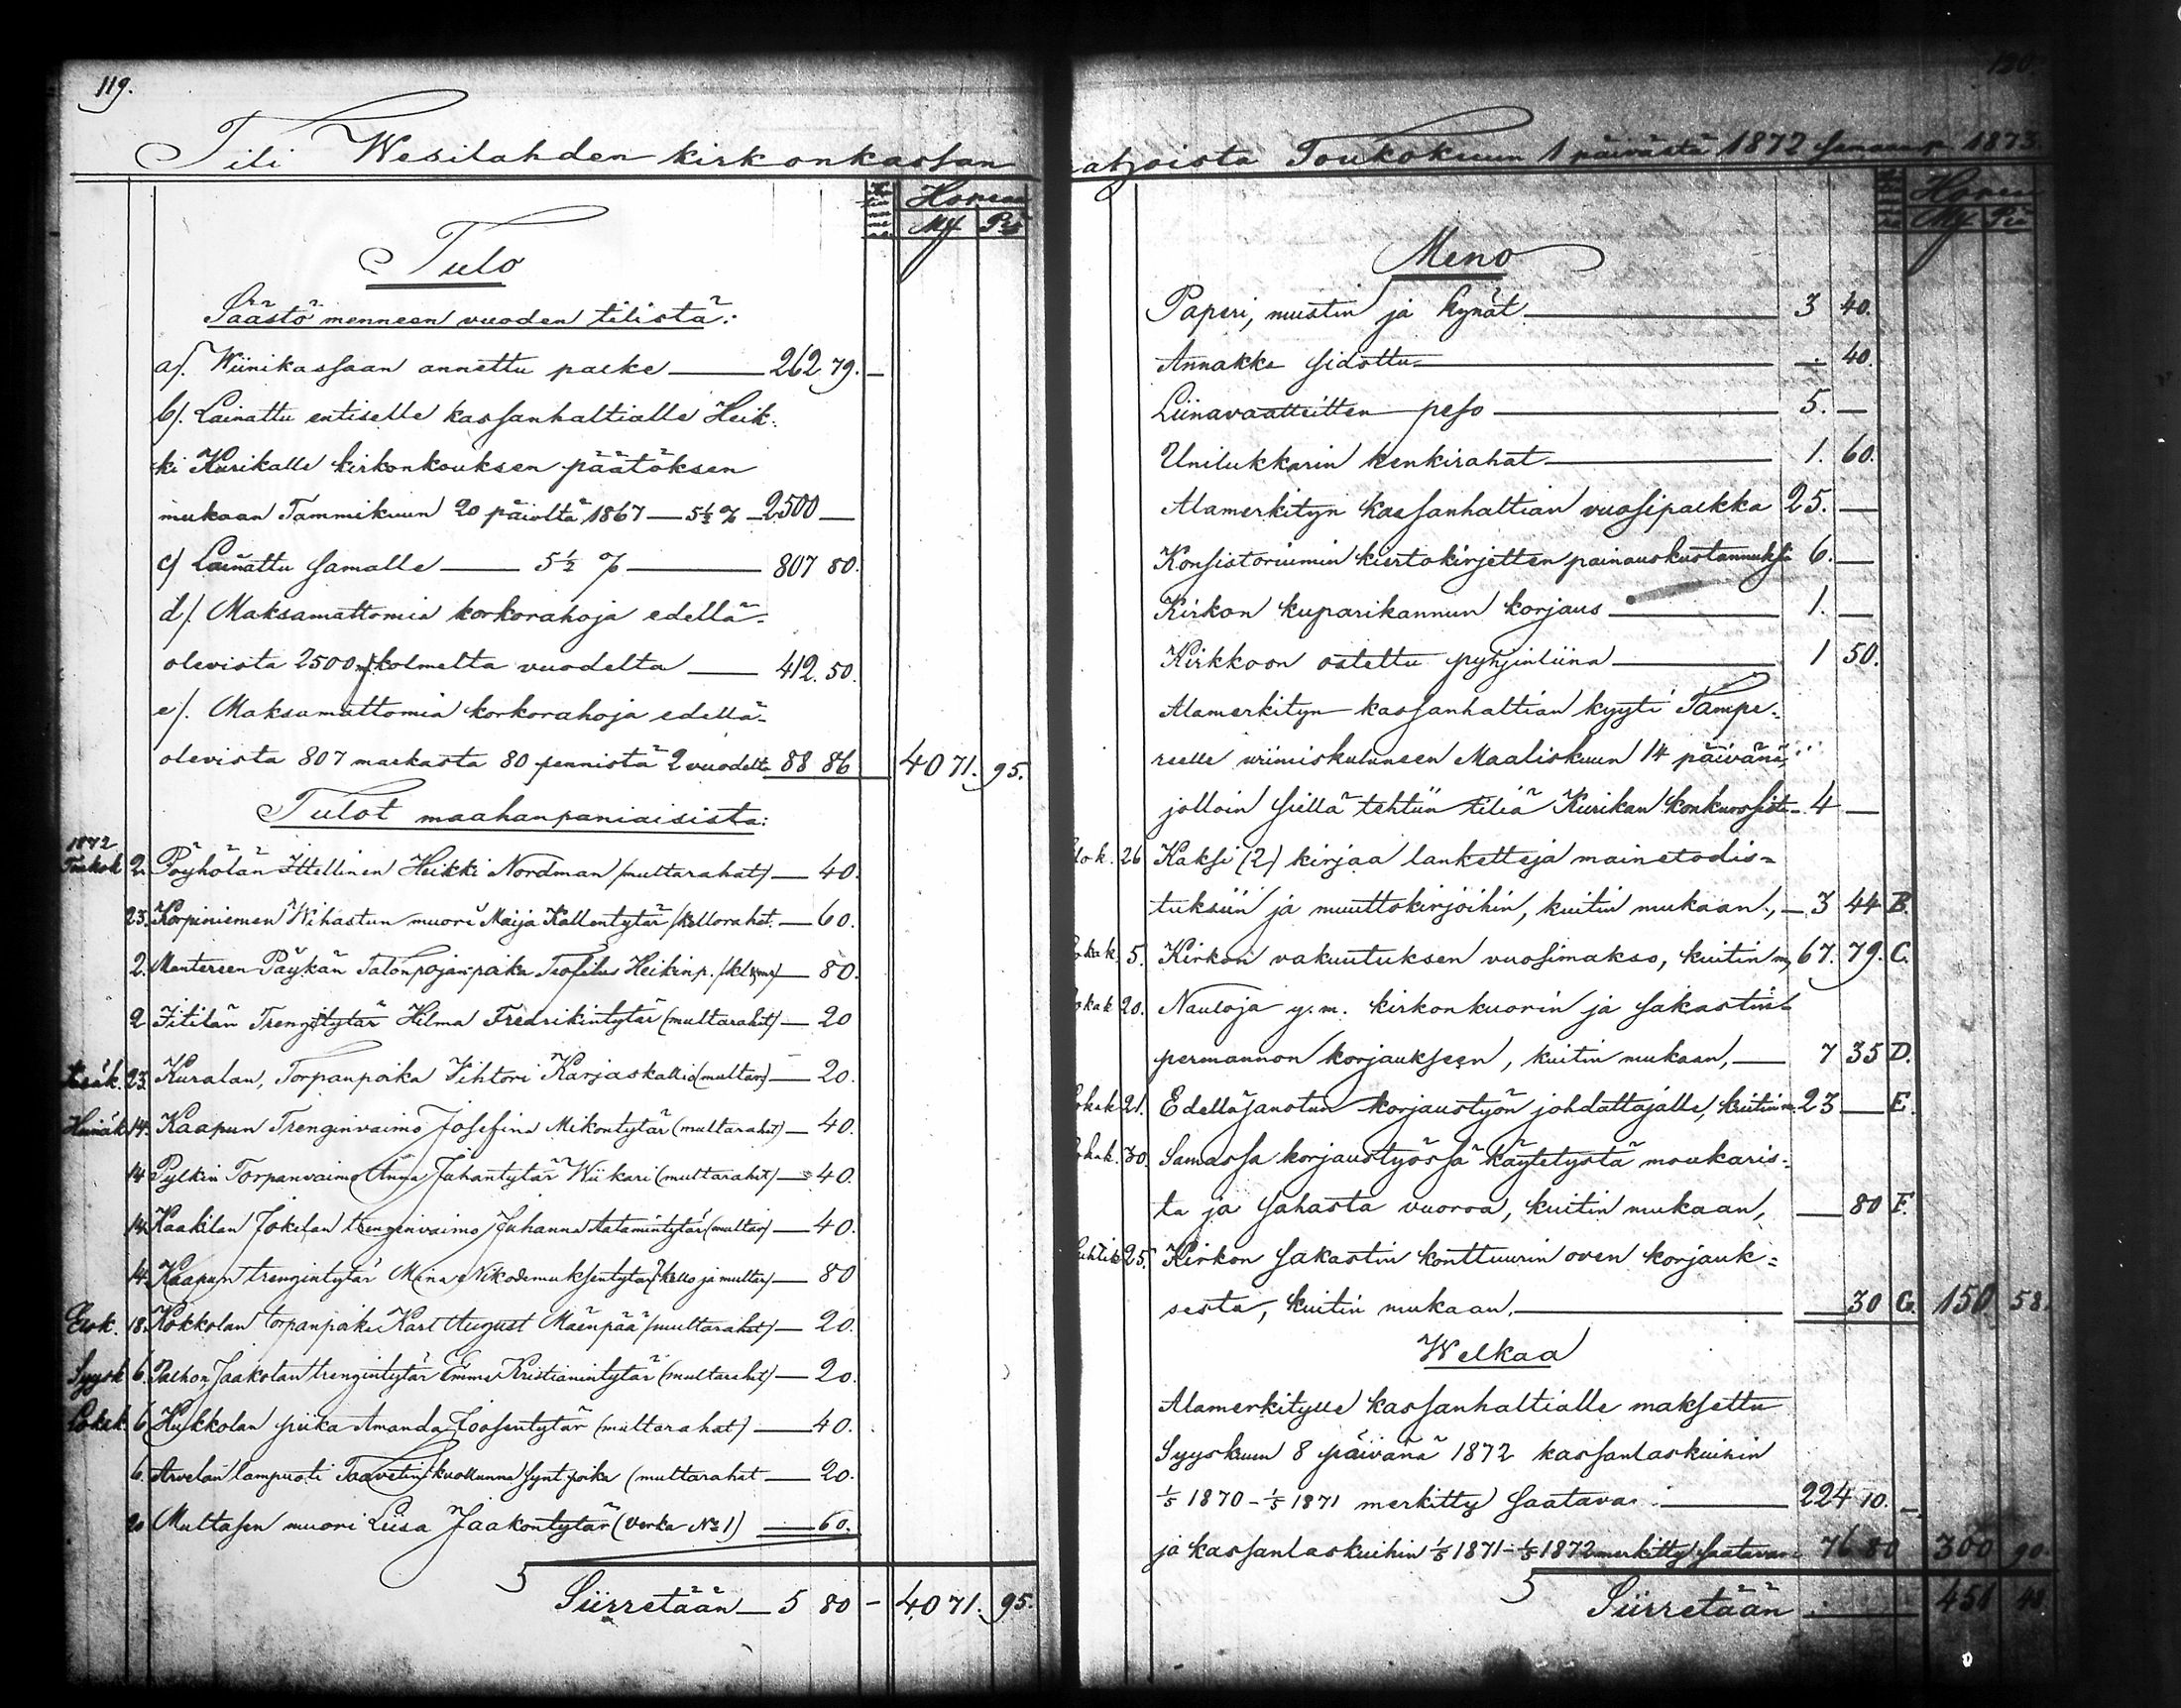 119.
Tili Wesilahden kirkonkassan
Hopeaa
Mk Pi
Tulo
Säästö menneen vuoden tilistä:
a). Wiinikassaan annettu palko — 262 79. —
b). Lainattu entiselle kassanhaltialle Heik:
ki Kurikalle kirkonkouksen päätöksen
mukaan Tammikuun 20 päivltä 1867 — 5½ % — 2500 —
c) Lainattu samalle — 5½ % — 807 80.
d). Maksamattomia korkorahoja edellä-
olevista 2500 mk kolmelta vuodelta — 412. 50.
e). Maksamattomia korkorahoja edellä-
olevista 807 markasta 80 pennistä 2 vuodelta 88 86 4071. 95.
Tulot maahanpaniaisista:
1872
Toukok 2. Pöyhölän Ittellinen Heikki Nordman (multarahat) — 40.
23. Korpiniemen Wihastun muori Maija Kallentytär (kellorahat. — 60.
2. Mantereen Päykän Talonpojanpoika Teofilus Heikinp. — 80.
2 Iitilän Trengitytär Hilma Fredrikintytär (multarahat) — 20
Kesäk. 23. Kuralan, Torpanpoika Vihtori Karjaskallio (multar) — 20.
Heinäk 14. Kaapun Trenginvaimo Josefina Mikontytär (multarahat) — 40.
14 Pylkin Torpanvaimo Anna Juhantytär Wiikari (multarahat) — 40.
14. Kaakilan Jokelan trenginvaimo Juhanna Aatamintytär (multar) — 40.
14. Kaapun trengintytär Miina Nikodemuksentytär (kello ja multar) — 80
Elok. 18. Kokkolan torpanpoika Karl August Mäenpää (multarahat) — 20.
Syysk 6. Palhon, Jaakolan trengintytär Emma Kristianintytär (multarahat) — 20.
Lokak. 6 Hukkolan piika Amanda Joosentytär (multarahat) — 40.
6. Arvelan lampuoti Taavetin kuollunna synt. poika (multarahat — 20.
20 Multasen muori Liisa Jaakontytär (verka No 1) — 60.
Siirretään — 5 80 — 4071. 95.
120.
ahjoista Toukokuun 1 päivästä 1872 samaan p 1873.
Hopea
Mk. Pi
Meno
Paperi, mustin ja kynät — 3 40.
Annakka sidottu — 40.
Liinavaatteitten peso — 5. —
Unilukkarin kenkirahat — 1. 60.
Alamerkityn kassanhaltian vuosipalkka 25. —
Konsistoriumin kiertokirjetten painauskustannuksi 6. —
Kirkon kuparikannun korjaus — 1. —
Kirkkoon ostettu pyhjinliina — 1 50.
Alamerkityn kassanhaltian kyyti Tampe:
reelle viimiskuluneen Maaliskuun 14 päivänä,
jolloin siellä tehtiin tiliä Kurikan konkurssista — 4 —
Elok. 26 Kaksi (2) kirjaa lanketteja mainetodis-
tuksiin ja muuttokirjoihin, kuitin mukaan, — 3 44 B.
Lokak. 5. Kirkon vakuutuksen vuosimakso, kuitin m, 67. 79. C.
Lokak 20. Nauloja y.m. kirkonkuorin ja sakastin
permannon korjaukseen, kuitin mukaan, — 7 35 D.
Lokak 21. Edelläsanotun korjaustyön johdattajalle, kuitin m. 23 — E.
Lokak. 30. Samassa korjaustyössä käytetystä moukaris:
ta ja sahasta vuoroa, kuitin mukaan, — 80 F.
Huhtik 25. Kirkon sakastin konttuurin oven korjauk=
sesta, kuitin mukaan. — 30 G. 150 58
Welkaa
Alamerkitylle kassanhaltialle maksettu
Syyskuun 8 päivänä 1872 kassanlaskuihin
1/5 1870 – 1/5 1871 merkitty saatava — 224 10. —
ja kassanlaskuihin 1/5 1871 – 1/5 1872 merkitty saatava 76 80 300 90.
Siirretään — 451 48